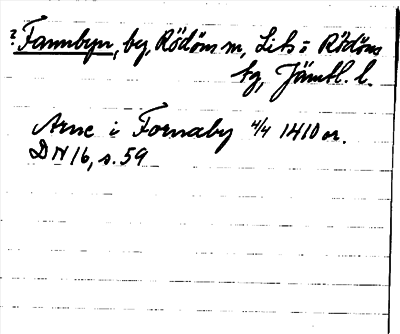 ? Fannbyn, by, Rödöns sn, Lits o Rödöns
tg, Jämtl. l.
Arne i Fornaby 4/4 1410 or.
DN 16, s. 59